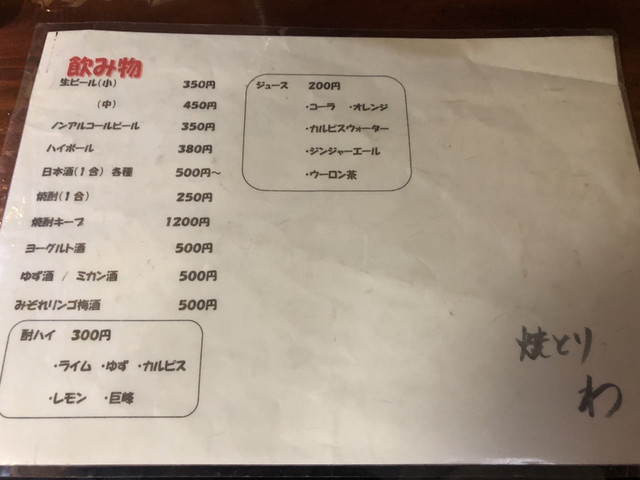 飲み物
生ビール(小) 350円
(中) 450円
ノンアルコールビール 350円
ハイボール 380円
日本酒(1合) 各種 500円～
焼酎(1合) 250円
焼酎キープ 1200円
ヨーグルト酒 500円
ゆず酒 / ミカン酒 500円
みぞれリンゴ梅酒 500円
酎ハイ 300円
・ライム ・ゆず ・カルピス
・レモン ・巨峰
ジュース 200円
・コーラ ・オレンジ
・カルピスウォーター
・ジンジャーエール
・ウーロン茶
焼とり
わ